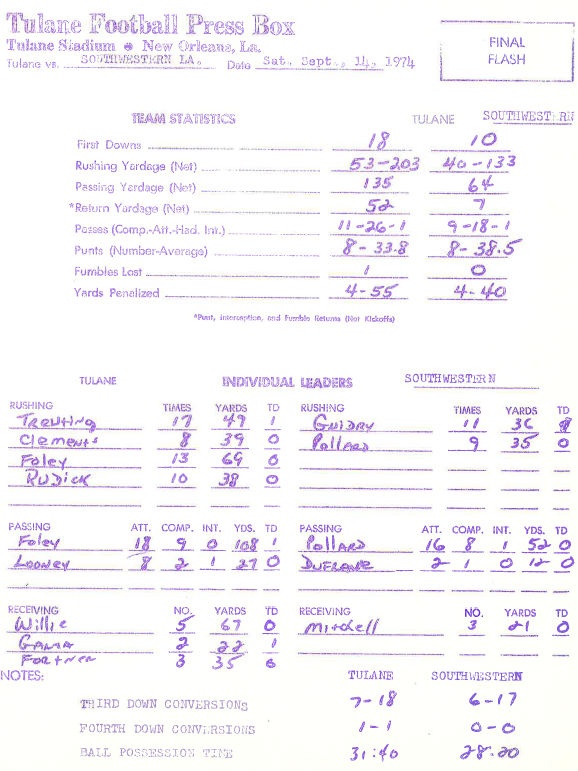 Tulane Football Press Box
Tulane Stadium • New Orleans, La.
Tulane vs. SOUTHWESTERN LA. Date Sat., Sept., 14, 1974
FINAL
FLASH
TEAM STATISTICS TULANE SOUTHWESTERN
First Downs 18 10
Rushing Yardage (Net) 53-203 40-133
Passing Yardage (Net) 135 64
*Return Yardage (Net) 52 7
Passes (Comp.-Att.-Had. Int.) 11-26-1 9-18-1
Punts (Number-Average) 8-33.8 8-38.5
Fumbles Lost 1 0
Yards Penalized 4-55 4-40
*Punt, interception, and Fumble Returns (Not Kickoffs)
TULANE INDIVIDUAL LEADERS SOUTHWESTERN
RUSHING TIMES YARDS TD RUSHING TIMES YARDS TD
TREUTING 17 49 1 GUIDRY 11 36
Clements 8 39 0 Pollard 9 35 0
Foley 13 69 0
RUDICK 10 38 0
PASSING ATT. COMP. INT. YDS. TD PASSING ATT. COMP. INT. YDS. TD
Foley 18 9 0 108 1 Pollard 16 8 1 52 0
Looney 8 2 1 27 0 DUFRANE 2 1 0 12 0
RECEIVING NO. YARDS TD RECEIVING NO. YARDS TD
Willie 5 67 0 Mitchell 3 21 0
2 22 1
Fortner 3 35 0
NOTES: TULANE SOUTHWESTERN
THIRD DOWN CONVERSIONS 7-18 6-17
FOURTH DOWN CONVERSIONS 1-1 0-0
BALL POSSESSION TIME 31:40 28:20